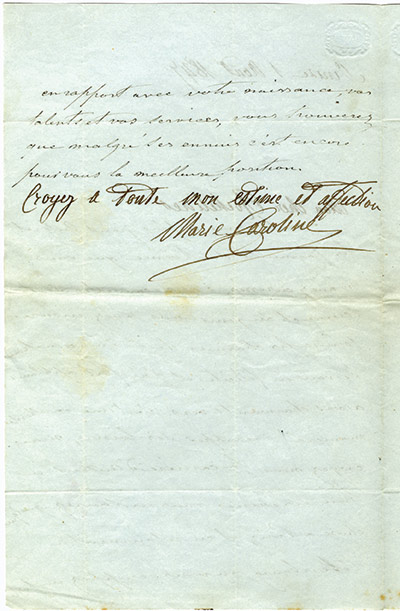 en rapport avec votre naissance, vos
talents et vos services, vous trouverez
que malgré ses ennuis c'est encore
pour vous la meilleure position.
Croyez a toute mon estime et affection
Marie Caroline